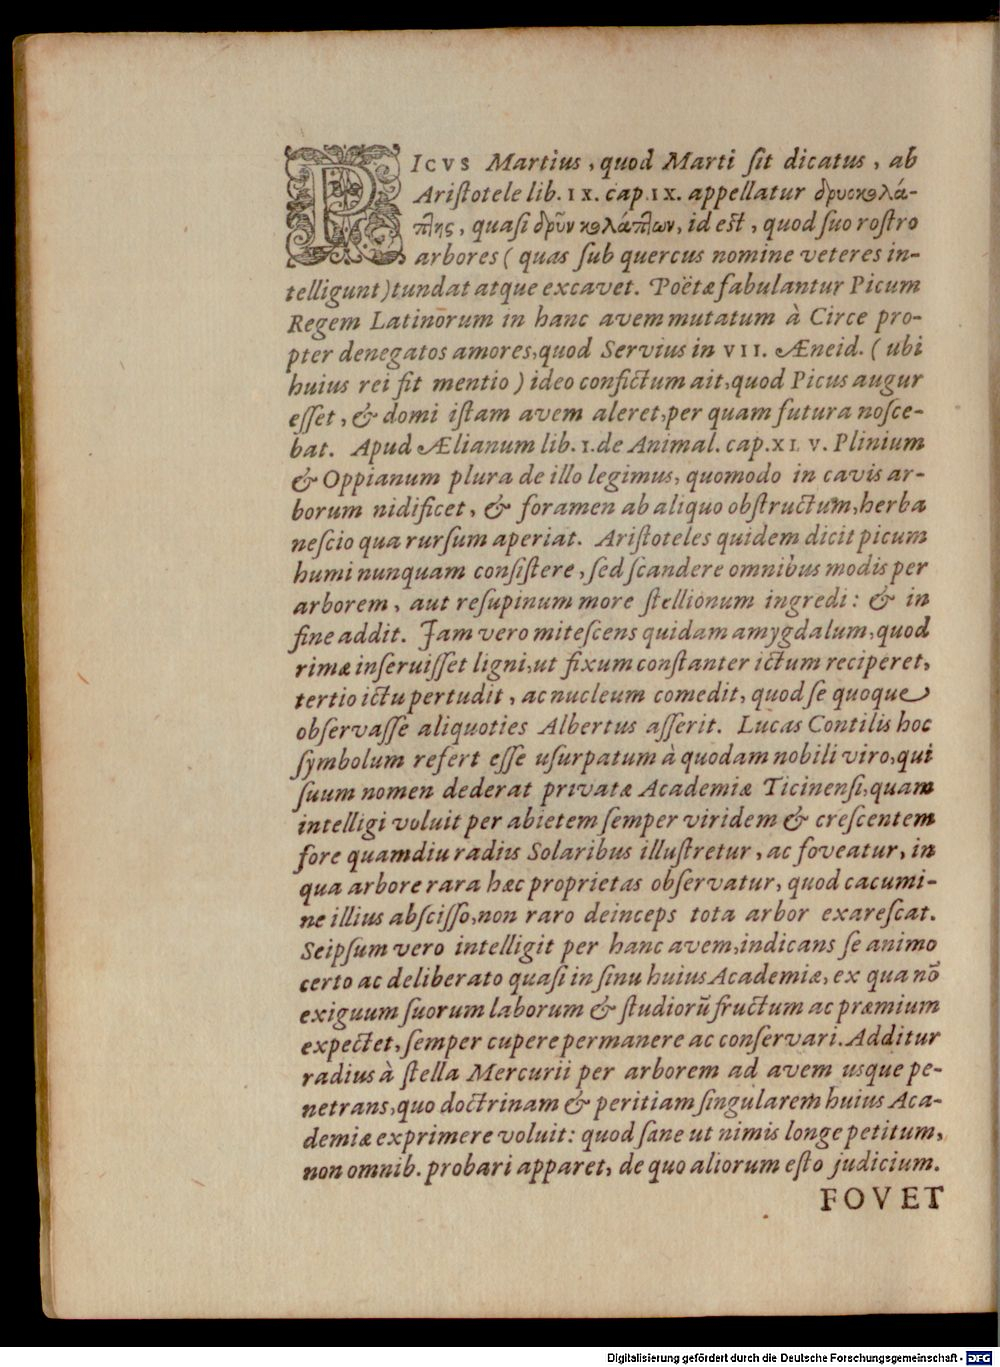 PICVS Martius, quod Marti sit dicatus, ab
Aristotele lib. IX. cap. IX. appellatur δρυοκολά-
πτης, quasi δρῦν κολάπτων, id est, quod suo rostro
arbores (quas sub quercus nomine veteres in-
telligunt) tundat atque excavet. Poëtæ fabulantur Picum
Regem Latinorum in hanc avem mutatum à Circe pro-
pter denegatos amores, quod Servius in VII. Æneid. (ubi
huius rei fit mentio) ideo confictum ait, quod Picus augur
esset, & domi istam avem aleret, per quam futura nosce-
bat. Apud Ælianum lib. I. de Animal. cap. XLV. Plinium
& Oppianum plura de illo legimus, quomodo in cavis ar-
borum nidificet, & foramen ab aliquo obstructum, herba
nescio qua rursum aperiat. Aristoteles quidem dicit picum
humi nunquam consistere, sed scandere omnibus modis per
arborem, aut resupinum more stellionum ingredi: & in
fine addit. Jam vero mitescens quidam amygdalum, quod
rimæ inseruisset ligni, ut fixum constanter ictum reciperet,
tertio ictu pertudit, ac nucleum comedit, quod se quoque
observasse aliquoties Albertus asserit. Lucas Contilis hoc
symbolum refert esse usurpatum à quodam nobili viro, qui
suum nomen dederat privatæ Academiæ Ticinensi, quam
intelligi voluit per abietem semper viridem & crescentem
fore quamdiu radiis Solaribus illustretur, ac foveatur, in
qua arbore rara hæc proprietas observatur, quod cacumi-
ne illius abscisso, non raro deinceps tota arbor exarescat.
Seipsum vero intelligit per hanc avem, indicans se animo
certo ac deliberato quasi in sinu huius Academiæ, ex qua nō
exiguum suorum laborum & studiorū fructum ac præmium
expectet, semper cupere permanere ac conservari. Additur
radius à stella Mercurii per arborem ad avem usque pe-
netrans, quo doctrinam & peritiam singularem huius Aca-
demiæ exprimere voluit: quod sane ut nimis longe petitum,
non omnib. probari apparet, de quo aliorum esto judicium.
FOVET
Digitalisierung gefördert durch die Deutsche Forschungsgemeinschaft - DFG